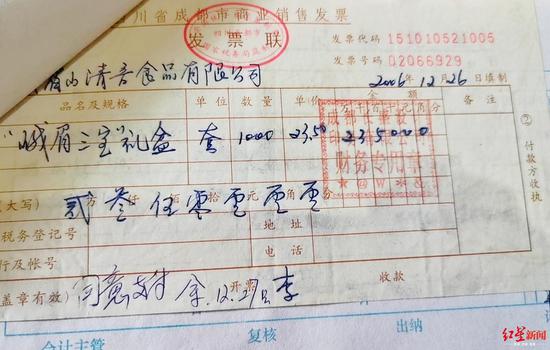 川省成都市商业销售发票
发票联
发票代码 151010521005
发票号码 02066929
眉山清音食品有限公司
2006年12月26日填制
品名及规格 单位 数量 单价 金额 备注
万千百十元角分
"峨眉三宝"礼盒 套 1000 23.50 2350000
财务专用章
②付款方收执
大写) 贰万叁仟伍佰零拾零元零角零分
税务登记号 地址
行及帐号 电话
盖章有效) 同意支付 余.12.27日 开票 李 收款
会计主管 复核 出纳
红星新闻